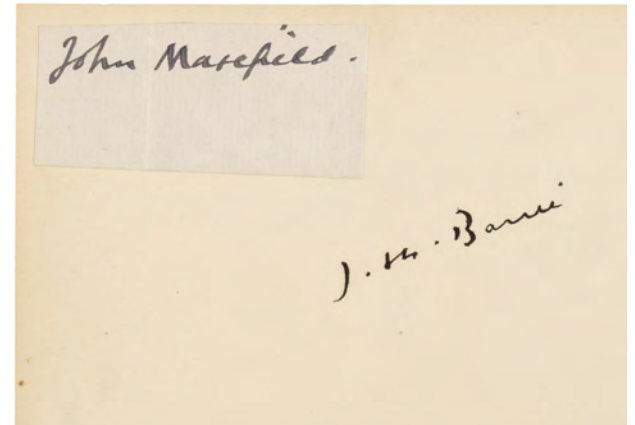 John Masefield.
J. M. Barrie